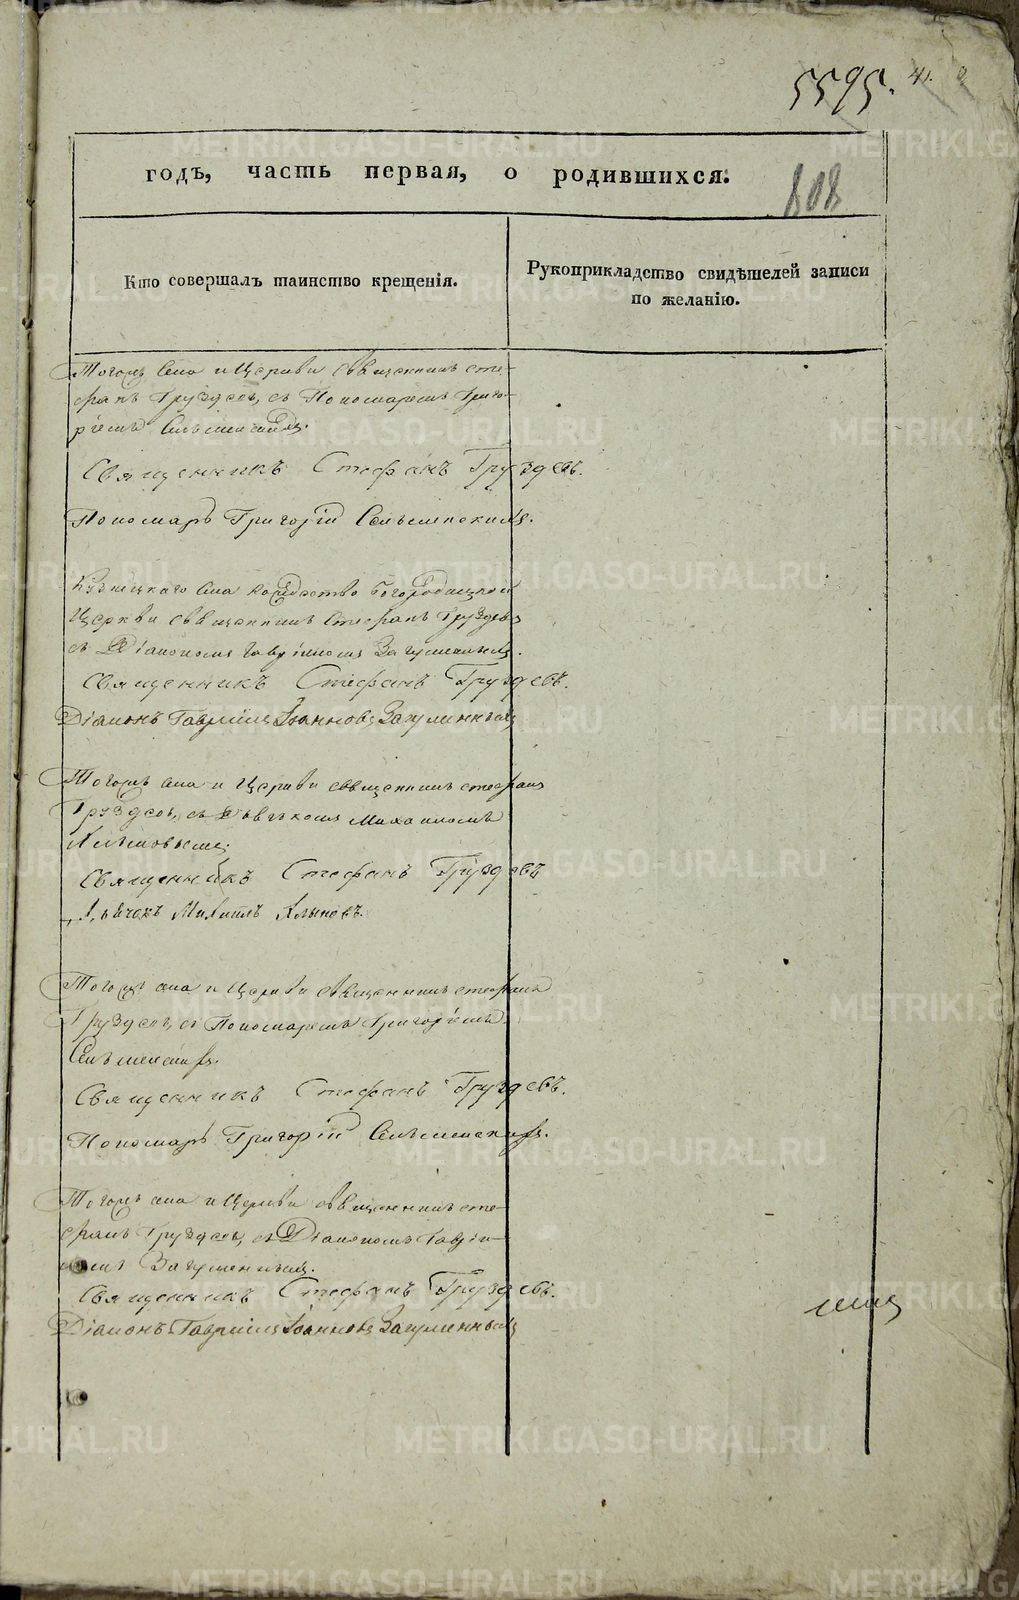 5595. 41.
годъ, часть первая, о родившихся.
808
Кто совершалъ таинство крещенія.
Рукоприкладство свидѣтелей записи
по желанію.
Тогожъ села и Церкви священникъ сте-
фанъ Груздевъ, съ Пономаремъ Григо-
ріемъ
Священникъ Стефанъ Груздевъ.
Пономарь Григорій
села Рождество Богородицкой
Церкви священникъ Стефанъ Груздевъ
съ Діакономъ Гавріиломъ
Священникъ Стефанъ Груздевъ.
Діаконъ Гавріилъ Іоанновъ
Тогожъ села и Церкви священникъ стефанъ
Груздевъ, съ Дьячкомъ Михаиломъ
Священникъ Стефанъ Груздевъ
Дьячокъ Михаилъ
Тогожъ села и Церкви священникъ стефанъ
Груздевъ, съ Пономаремъ Григоріемъ
Священникъ Стефанъ Груздевъ.
Пономарь Григорій
Тогожъ села и Церкви священникъ сте-
фанъ Груздевъ, съ Діакономъ Гаврі-
иломъ
Священникъ Стефанъ Груздевъ.
Діаконъ Гавріилъ Іоанновъ
METRIKI.GASO-URAL.RU